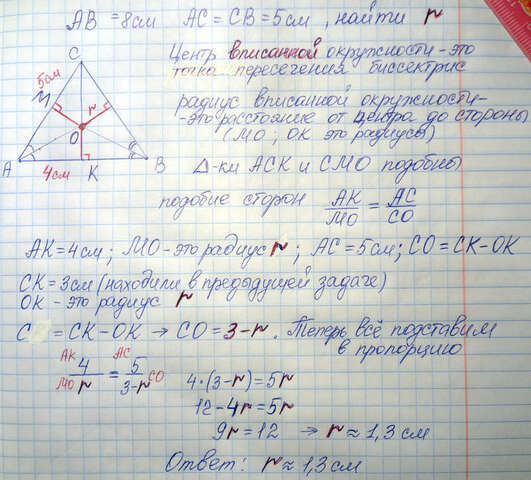 AB = 8см AC = CB = 5см, найти r
Центр вписанной окружности - это
точка пересечения биссектрис
радиус вписанной окружности -
- это расстояние от центра до стороны
(МО; ОК это радиусы)
Δ-ки АСК и СМО подобны
подобие сторон AK/MO = AC/CO
C
5см
М
r
O
A
4см
K
B
АК = 4см; МО - это радиус r; АС = 5см; СО = СК - ОК
СК = 3см (находили в предыдущей задаче)
ОК - это радиус r
С = СК - ОК → СО = 3 - r. Теперь всё подставим
в пропорцию
АК 4 / МО r = АС 5 / 3 - r СО
4 · (3 - r) = 5r
12 - 4r = 5r
9r = 12 ⇒ r ≈ 1,3 см
Ответ: r ≈ 1,3 см